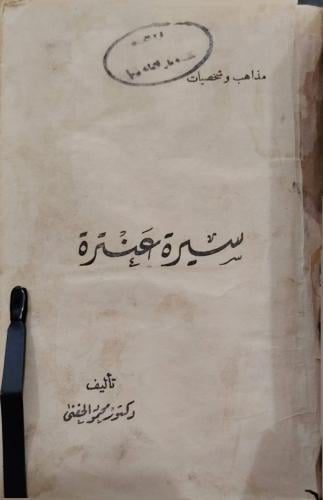 مذاهب وشخصيات
سيرة عنترة
تأليف
دكتور محمود الحفني